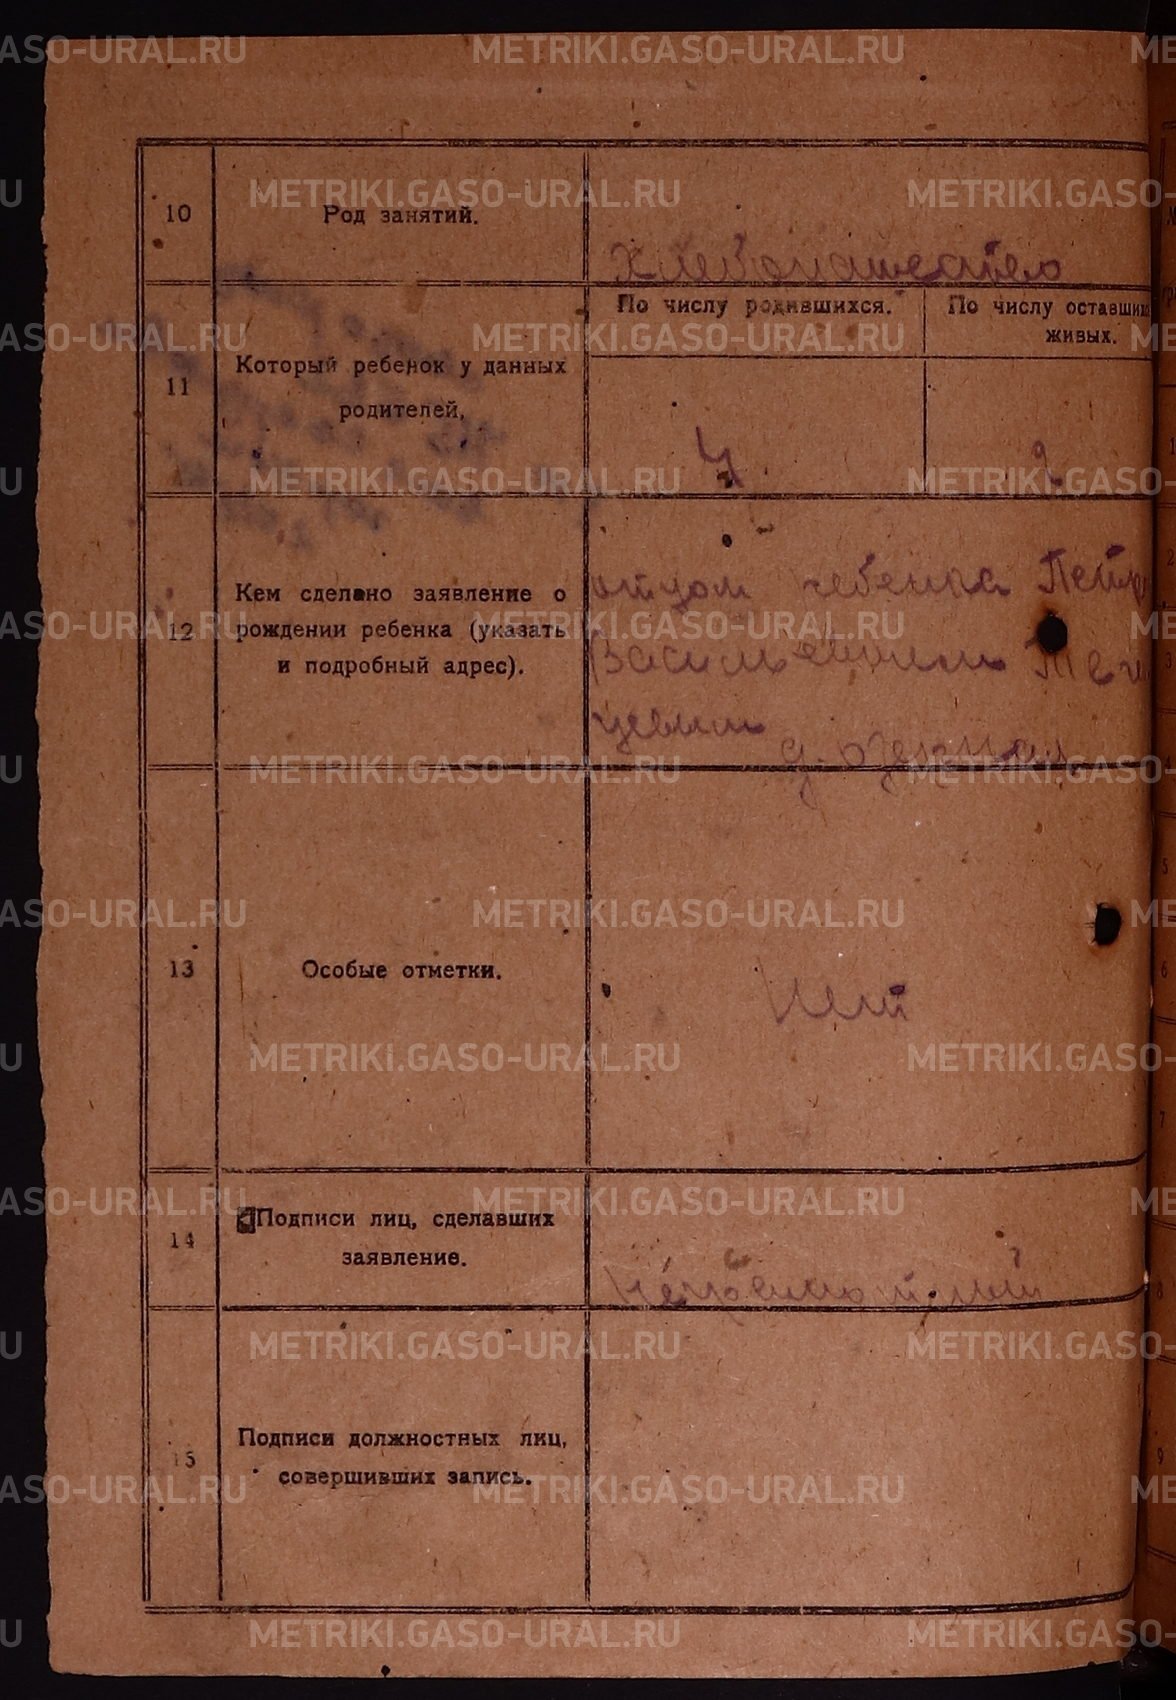 10
Род занятий.
Хлебопашество
11
Который ребенок у данных
родителей.
По числу родившихся.
По числу оставших
живых.
4
2
12
Кем сделано заявление о
рождении ребенка (указать
и подробный адрес).
отцом ребенка Петр
Васильевичем
цевым
д.
13
Особые отметки.
Нет
14
Подписи лиц, сделавших
заявление.
Неграмотный
15
Подписи должностных лиц,
совершивших запись.
METRIKI.GASO-URAL.RU